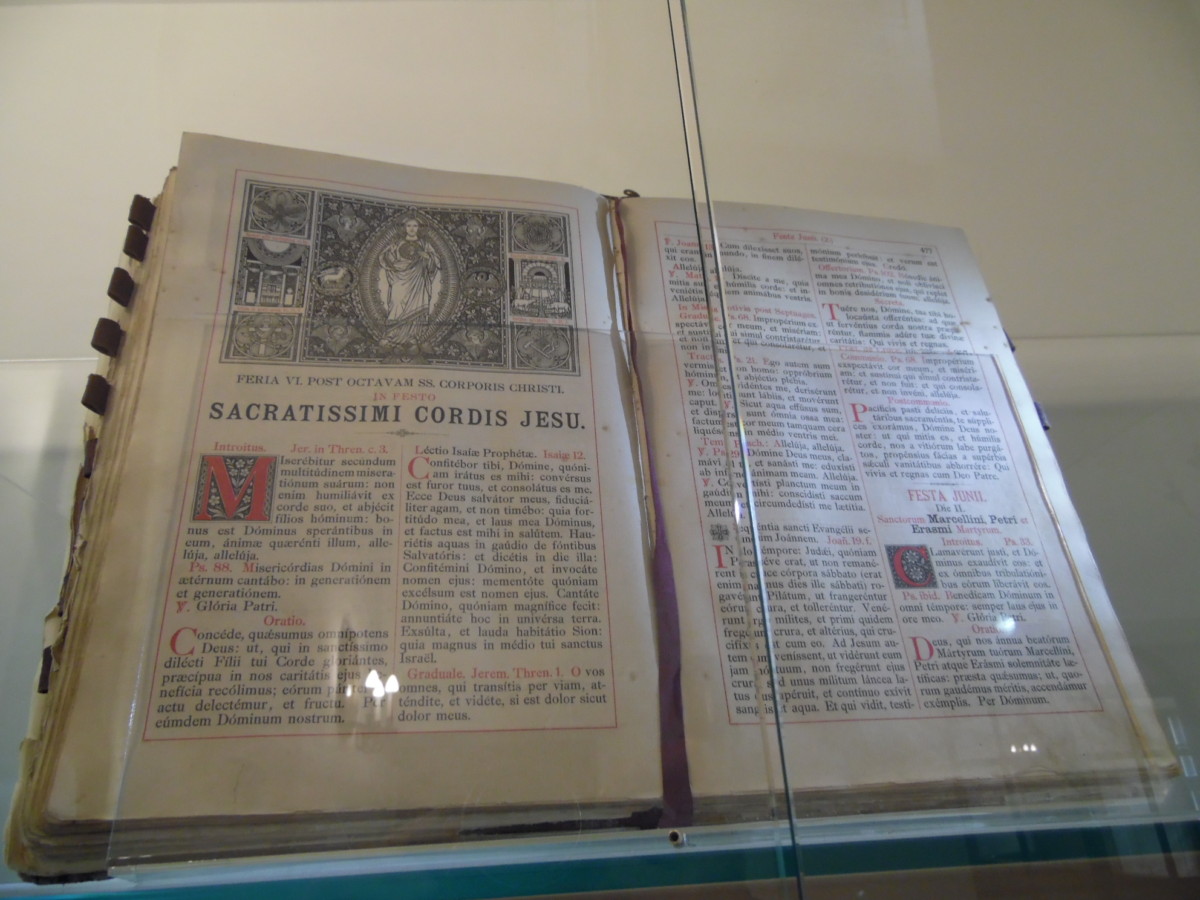 FERIA VI. POST OCTAVAM SS. CORPORIS CHRISTI.
IN FESTO
SACRATISSIMI CORDIS JESU.
Introitus. Jer. in Thren. c. 3.
Miserébitur secundum
multitúdinem misera-
tiónum suárum: non
enim humiliávit ex
corde suo, et abjécit
fílios hóminum: bo-
nus est Dóminus sperántibus in
eum, ánimæ quærénti illum, alle-
lúja, allelúja.
Ps. 88. Misericórdias Dómini in
ætérnum cantábo: in generatiónem
et generatiónem.
℣. Glória Patri.
Oratio.
Concéde, quǽsumus omnípotens
Deus: ut, qui in sanctíssimo
dilécti Fílii tui Corde gloriántes,
præcípua in nos caritátis ejus
nefícia recólimus; eórum
actu delectémur, et fructu. Per
eúmdem Dóminum nostrum.
Léctio Isaíæ Prophétæ. Isaiæ 12.
Confitébor tibi, Dómine, quóni-
am irátus es mihi: convérsus
est furor tuus, et consolátus es me.
Ecce Deus salvátor meus, fiduciá-
liter agam, et non timébo: quia for-
titúdo mea, et laus mea Dóminus,
et factus est mihi in salútem. Hau-
riétis aquas in gáudio de fóntibus
Salvatóris: et dicétis in die illa:
Confitémini Dómino, et invocáte
nomen ejus: mementóte quóniam
excélsum est nomen ejus. Cantáte
Dómino, quóniam magnífice fecit:
annuntiáte hoc in univérsa terra.
Exsúlta, et lauda habitátio Sion:
quia magnus in médio tui sanctus
Israël.
Graduale. Jerem. Thren. 1. O vos
omnes, qui transítis per viam, at-
téndite, et vidéte, si est dolor sicut
dolor meus.
Festa Junii.
477
℣. Joann. Cum dilexísset suos,
qui erant in mundo, in finem dilé-
xit eos.
Allelúja, allelúja.
℣. Discite a me, quia
mitis sum húmilis corde: et in-
veniétis réquiem animábus vestris.
Allelúja.
In Missis votivis post Septuages.
Graduale. Ps. 68. Impropérium ex-
spectávit cor meum, et misériam:
et sustínui qui simul contristarétur,
et non qui consolarétur, et
non in
Tractus. Ps. 21. Ego autem sum
vermis non homo: oppróbrium
hóminum et abjéctio plebis.
℣. Omnes vidéntes me, derisérunt
me: locúti sunt lábiis, et movérunt
caput. ℣. Sicut aqua effúsus sum,
et dispérsa sunt ómnia ossa mea:
factum est cor meum tamquam cera
liquéscens in médio ventris mei.
Temp. Pasch.: Allelúja, allelúja.
℣. Ps. 29. Dómine Deus meus, cla-
mávi ad te et sanásti me: eduxísti
ab inférno ánimam meam. Allelúja.
℣. Convertísti planctum meum in
gáudium mihi: conscidísti saccum
meum et circumdedísti me lætítia.
Allelúja.
Sequéntia sancti Evangélii se-
cúndum Joánnem. Joan. 19. f.
In illo témpore: Judǽi, quóniam
Parascéve erat, ut non remané-
rent in cruce córpora sábbato (erat
enim magnus dies ille sábbati) ro-
gavérunt Pilátum, ut frangeréntur
eórum crura, et tolleréntur. Vené-
runt ergo mílites, et primi quidem
fregérunt crura, et altérius, qui cru-
cifíxus est cum eo. Ad Jesum au-
tem cum veníssent, ut vidérunt eum
jam mórtuum, non fregérunt ejus
crura, sed unus mílitum láncea la-
tus ejus apéruit, et contínuo exívit
sanguis et aqua. Et qui vidit, testi-
Offertorium.
Secreta.
Tuére nos, Dómine, tua tibi ho-
locáusta offeréntes: ad quæ
ut fervéntius corda nostra præpa-
réntur, flammis adúre tuæ divínæ
caritátis: Qui vivis et regnas.
Communio. Ps. 68. Impropérium
exspectávit cor meum, et miséri-
am: et sustínui qui simul contrista-
rétur, et non fuit: et qui consola-
rétur, et non invéni, allelúja.
Postcommunio.
Pacíficis pasti delíciis, et salu-
táribus sacraméntis, te súppli-
ces exorámus, Dómine Deus no-
ster: ut qui mitis es, et húmilis
corde, nos a vitiórum labe purgá-
tos, propénsius fácias a supérbis
sǽculi vanitátibus abhorrére: Qui
vivis et regnas cum Deo Patre.
FESTA JUNII.
Die II.
Sanctorum Marcellini, Petri et
Erasmi Martyrum.
Introitus. Ps. 33.
Clamavérunt justi, et Dó-
minus exaudívit eos: et
ex ómnibus tribulatióni-
bus eórum liberávit eos.
Ps. ibid. Benedícam Dóminum in
omni témpore: semper laus ejus in
ore meo. ℣. Glória Patri.
Oratio.
Deus, qui nos ánnua beatórum
Mártyrum tuórum Marcellíni,
Petri atque Erásmi solemnitáte læ-
tíficas: præsta quǽsumus; ut, quo-
rum gaudémus méritis, accendámur
exémplis. Per Dóminum.